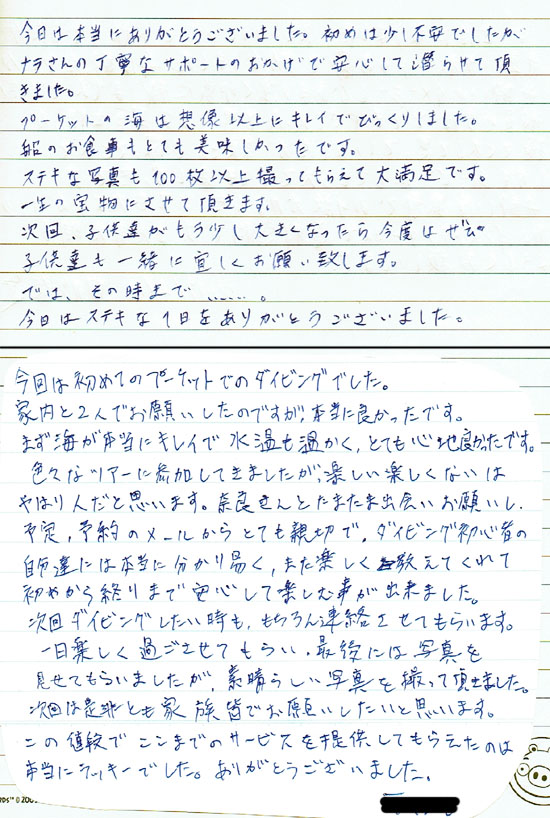 今日は本当にありがとうございました。初めは少し不安でしたが
ナラさんの丁寧なサポートのおかげで安心して潜らせて頂
きました。
プーケットの海は想像以上にキレイでびっくりしました。
船のお食事もとても美味しかったです。
ステキな写真も100枚以上撮ってもらえて大満足です。
一生の宝物にさせて頂きます。
次回、子供達がもう少し大きくなったら今度はぜひ
子供達も一緒に宜しくお願い致します。
では、その時まで……。
今日はステキな1日をありがとうございました。
今回は初めてのプーケットでのダイビングでした。
家内と2人でお願いしたのですが、本当に良かったです。
まず海が本当にキレイで水温も温かく、とても心地良かったです。
色々なツアーに参加してきましたが、楽しい楽しくないは
やはり人だと思います。奈良さんとたまたま出会いお願いし、
予定、予約のメールからとても親切で、ダイビング初心者の
自分達には本当に分かり易く、また楽しく教えてくれて
初めから終りまで安心して楽しむ事が出来ました。
次回ダイビングしたい時も、もちろん連絡させてもらいます。
一日楽しく過ごさせてもらい、最後には写真を
見せてもらいましたが、素晴らしい写真を撮って頂きました。
次回は是非とも家族皆でお願いしたいと思います。
この値段でここまでのサービスを提供してもらえたのは
本当にラッキーでした。ありがとうございました。